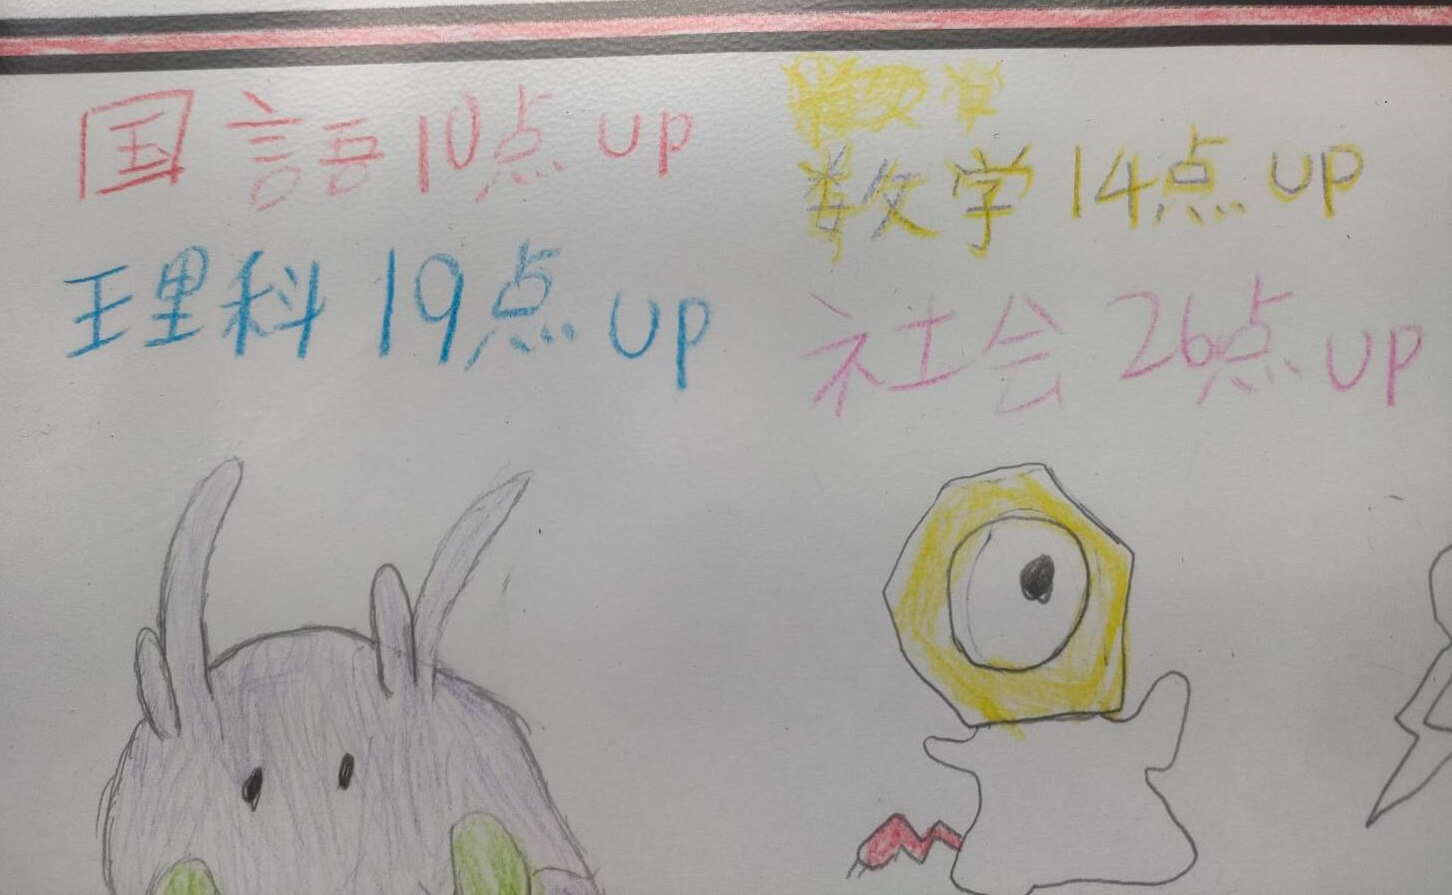 国語10点up
数学
数学14点up
理科 19点up
社会 26点up